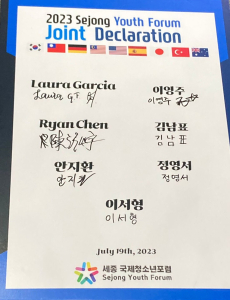 2023 Sejong Youth Forum
Joint Declaration
Laura Garcia 이영주
이영주
Ryan Chen 김남표
김남표
안지환 정영서
안지환 정영서
이서형
이서형
July 19th, 2023
세종 국제청소년포럼
Sejong Youth Forum